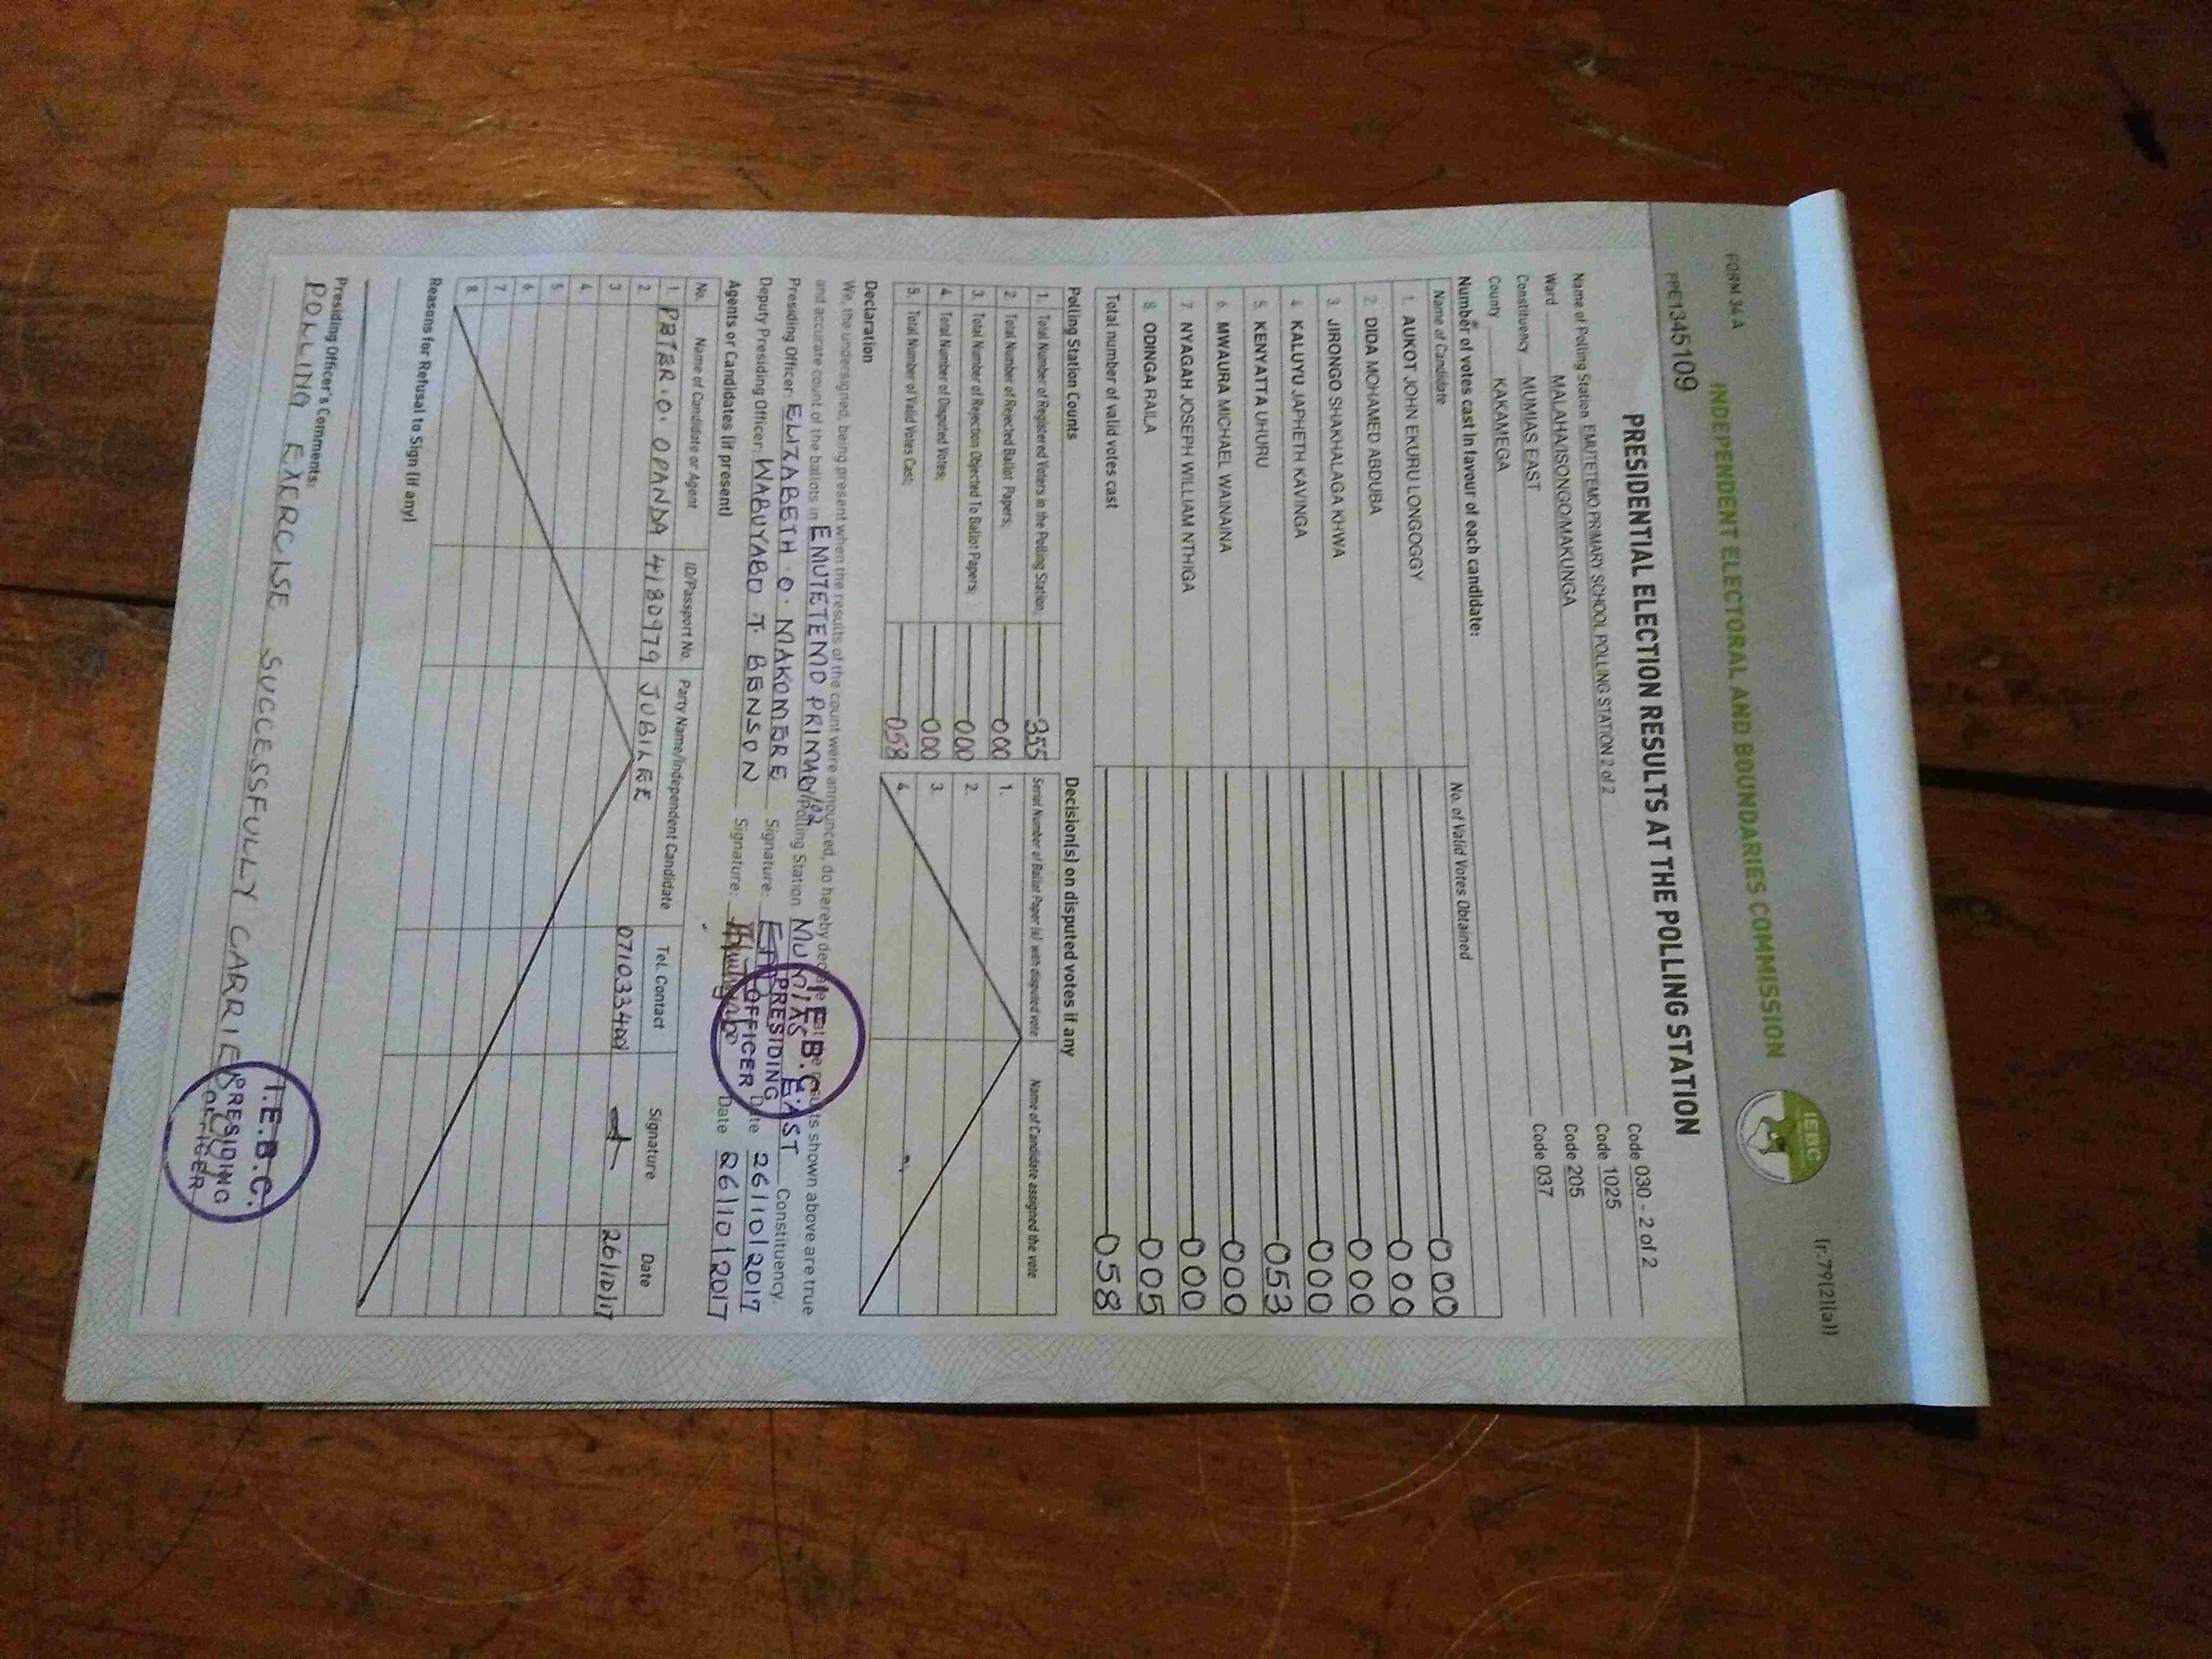 FORM 34 A
(r.79(2)(a))
INDEPENDENT ELECTORAL AND BOUNDARIES COMMISSION
IEBC
PPE1345109
PRESIDENTIAL ELECTION RESULTS AT THE POLLING STATION
Name of Polling Station EMUTETEMO PRIMARY SCHOOL POLLING STATION 2 of 2 Code 030 - 2 of 2
Ward MALAHA/ISONGO/MAKUNGA Code 1025
Constituency MUMIAS EAST Code 205
County KAKAMEGA Code 037
Number of votes cast in favour of each candidate:
Name of Candidate No. of Valid Votes Obtained
1. AUKOT JOHN EKURU LONGOGGY 000
2. DIDA MOHAMED ABDUBA 000
3. JIRONGO SHAKHALAGA KHWA 000
4. KALUYU JAPHETH KAVINGA 000
5. KENYATTA UHURU 053
6. MWAURA MICHAEL WAINAINA 000
7. NYAGAH JOSEPH WILLIAM NTHIGA 000
8. ODINGA RAILA 005
Total number of valid votes cast 058
Polling Station Counts
1. Total Number of Registered Voters in the Polling Station; 355
2. Total Number of Rejected Ballot Papers; 000
3. Total Number of Rejection Objected To Ballot Papers; 000
4. Total Number of Disputed Votes; 000
5. Total Number of Valid Votes Cast; 058
Decision(s) on disputed votes if any
Serial Number of Ballot Paper (s) with disputed vote Name of Candidate assigned the vote
1.
2.
3.
4.
Declaration
We, the undersigned, being present when the results of the count were announced, do hereby declare that the results shown above are true
and accurate count of the ballots in EMUTETEMO PRIMARY/02 Polling Station MUMIAS EAST Constituency.
Presiding Officer: ELIZABETH O. MAKOMERE Signature: Date 26/10/2017
Deputy Presiding Officer: WABUYABO T. BENSON Signature: Date 26/10/2017
I.E.B.C.
PRESIDING
OFFICER
Agents or Candidates (if present)
No. Name of Candidate or Agent ID/Passport No. Party Name/Independent Candidate Tel. Contact Signature Date
1. PETER O. OPANDA 4180979 JUBILEE 0710334001 26/10/17
2.
3.
4.
5.
6.
7.
8.
Reasons for Refusal to Sign (if any)
Presiding Officer's Comments:
POLLING EXERCISE SUCCESSFULLY CARRIED
I.E.B.C.
PRESIDING
OFFICER